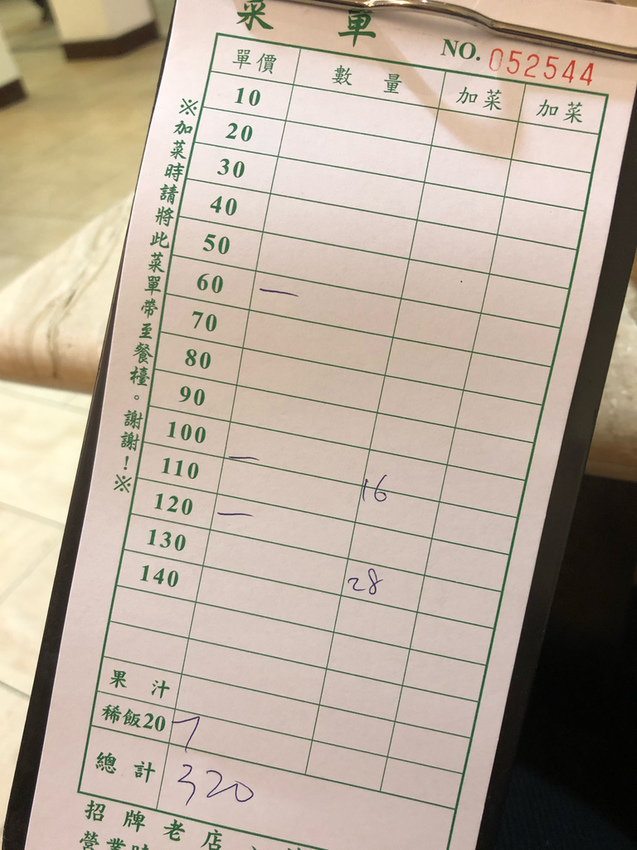 菜單
NO. 052544
單價 數量 加菜 加菜
10
20
30
40
50
60 一
70
80
90
100
110 一
16
120 一
130
140 28
果汁
稀飯20 1
總計 320
※加菜時請將此菜單帶至餐檯。謝謝！※
招牌老店
營業時